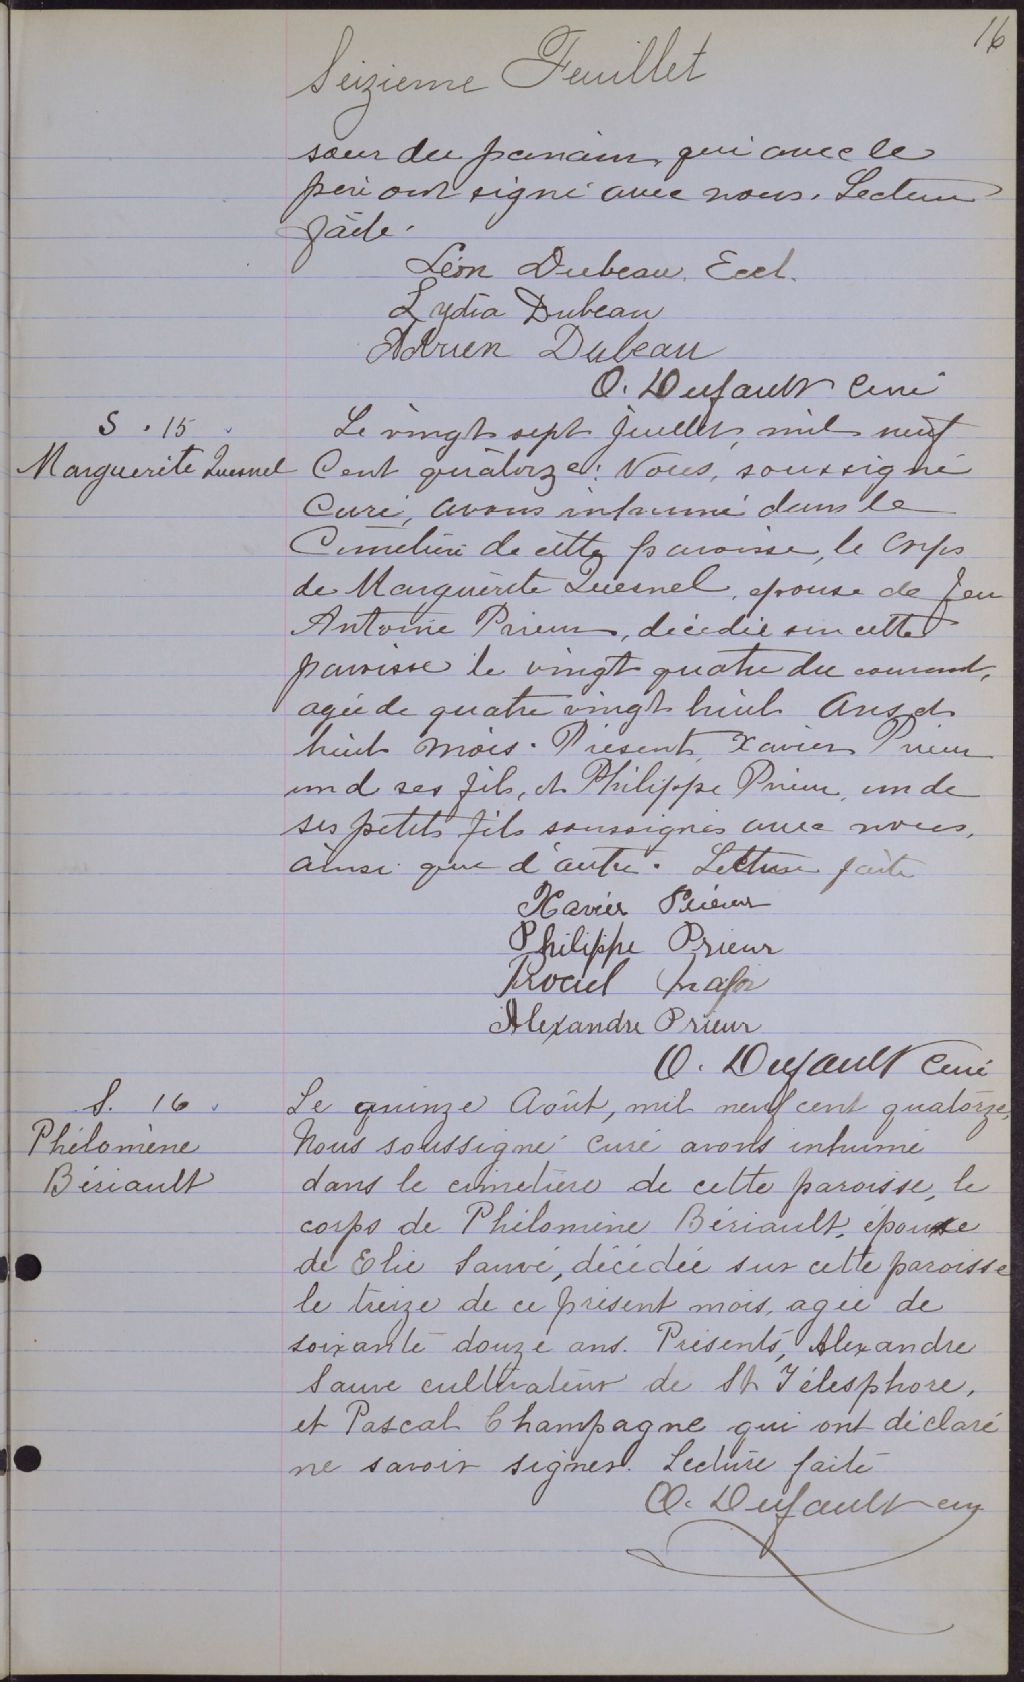 16
Seizieme Feuillet
sœur du parrain, qui avec le
père ont signé avec nous. Lecture
faite.
Léon Dubeau. Eccl.
Lydia Dubeau
Adrien Dubeau
O. Dufault Curé
S. 15
Marguerite Quesnel
Le vingt sept Juillet, mil neuf
Cent quatorze: Nous, soussigné
Curé, avons inhumé dans le
Cimetière de cette paroisse, le Corps
de Marguerite Quesnel, épouse de feu
Antoine Prieur, décédée sur cette
paroisse le vingt quatre du courant,
agée de quatre vingt huit Ans et
huit mois. Présents, Xavier Prieur
un d ses fils, et Philippe Prieur, un de
ses petits fils soussignés avec nous,
ainsi que d'autre. Lecture faite
Xavier Prieur
Philippe Prieur
Alexandre Prieur
O. Dufault Curé
S. 16
Philomène
Bériault
Le quinze Août, mil neuf cent quatorze,
Nous soussigné curé avons inhumé
dans le cimetière de cette paroisse, le
corps de Philomène Bériault, épouse
de Elie Sauvé, décédée sur cette paroisse
le treize de ce présent mois, agée de
soixante douze ans. Présents, Alexandre
Sauve cultivateur de St Télesphore,
et Pascal Champagne qui ont déclaré
ne savoir signer. Lecture faite
O. Dufault cur